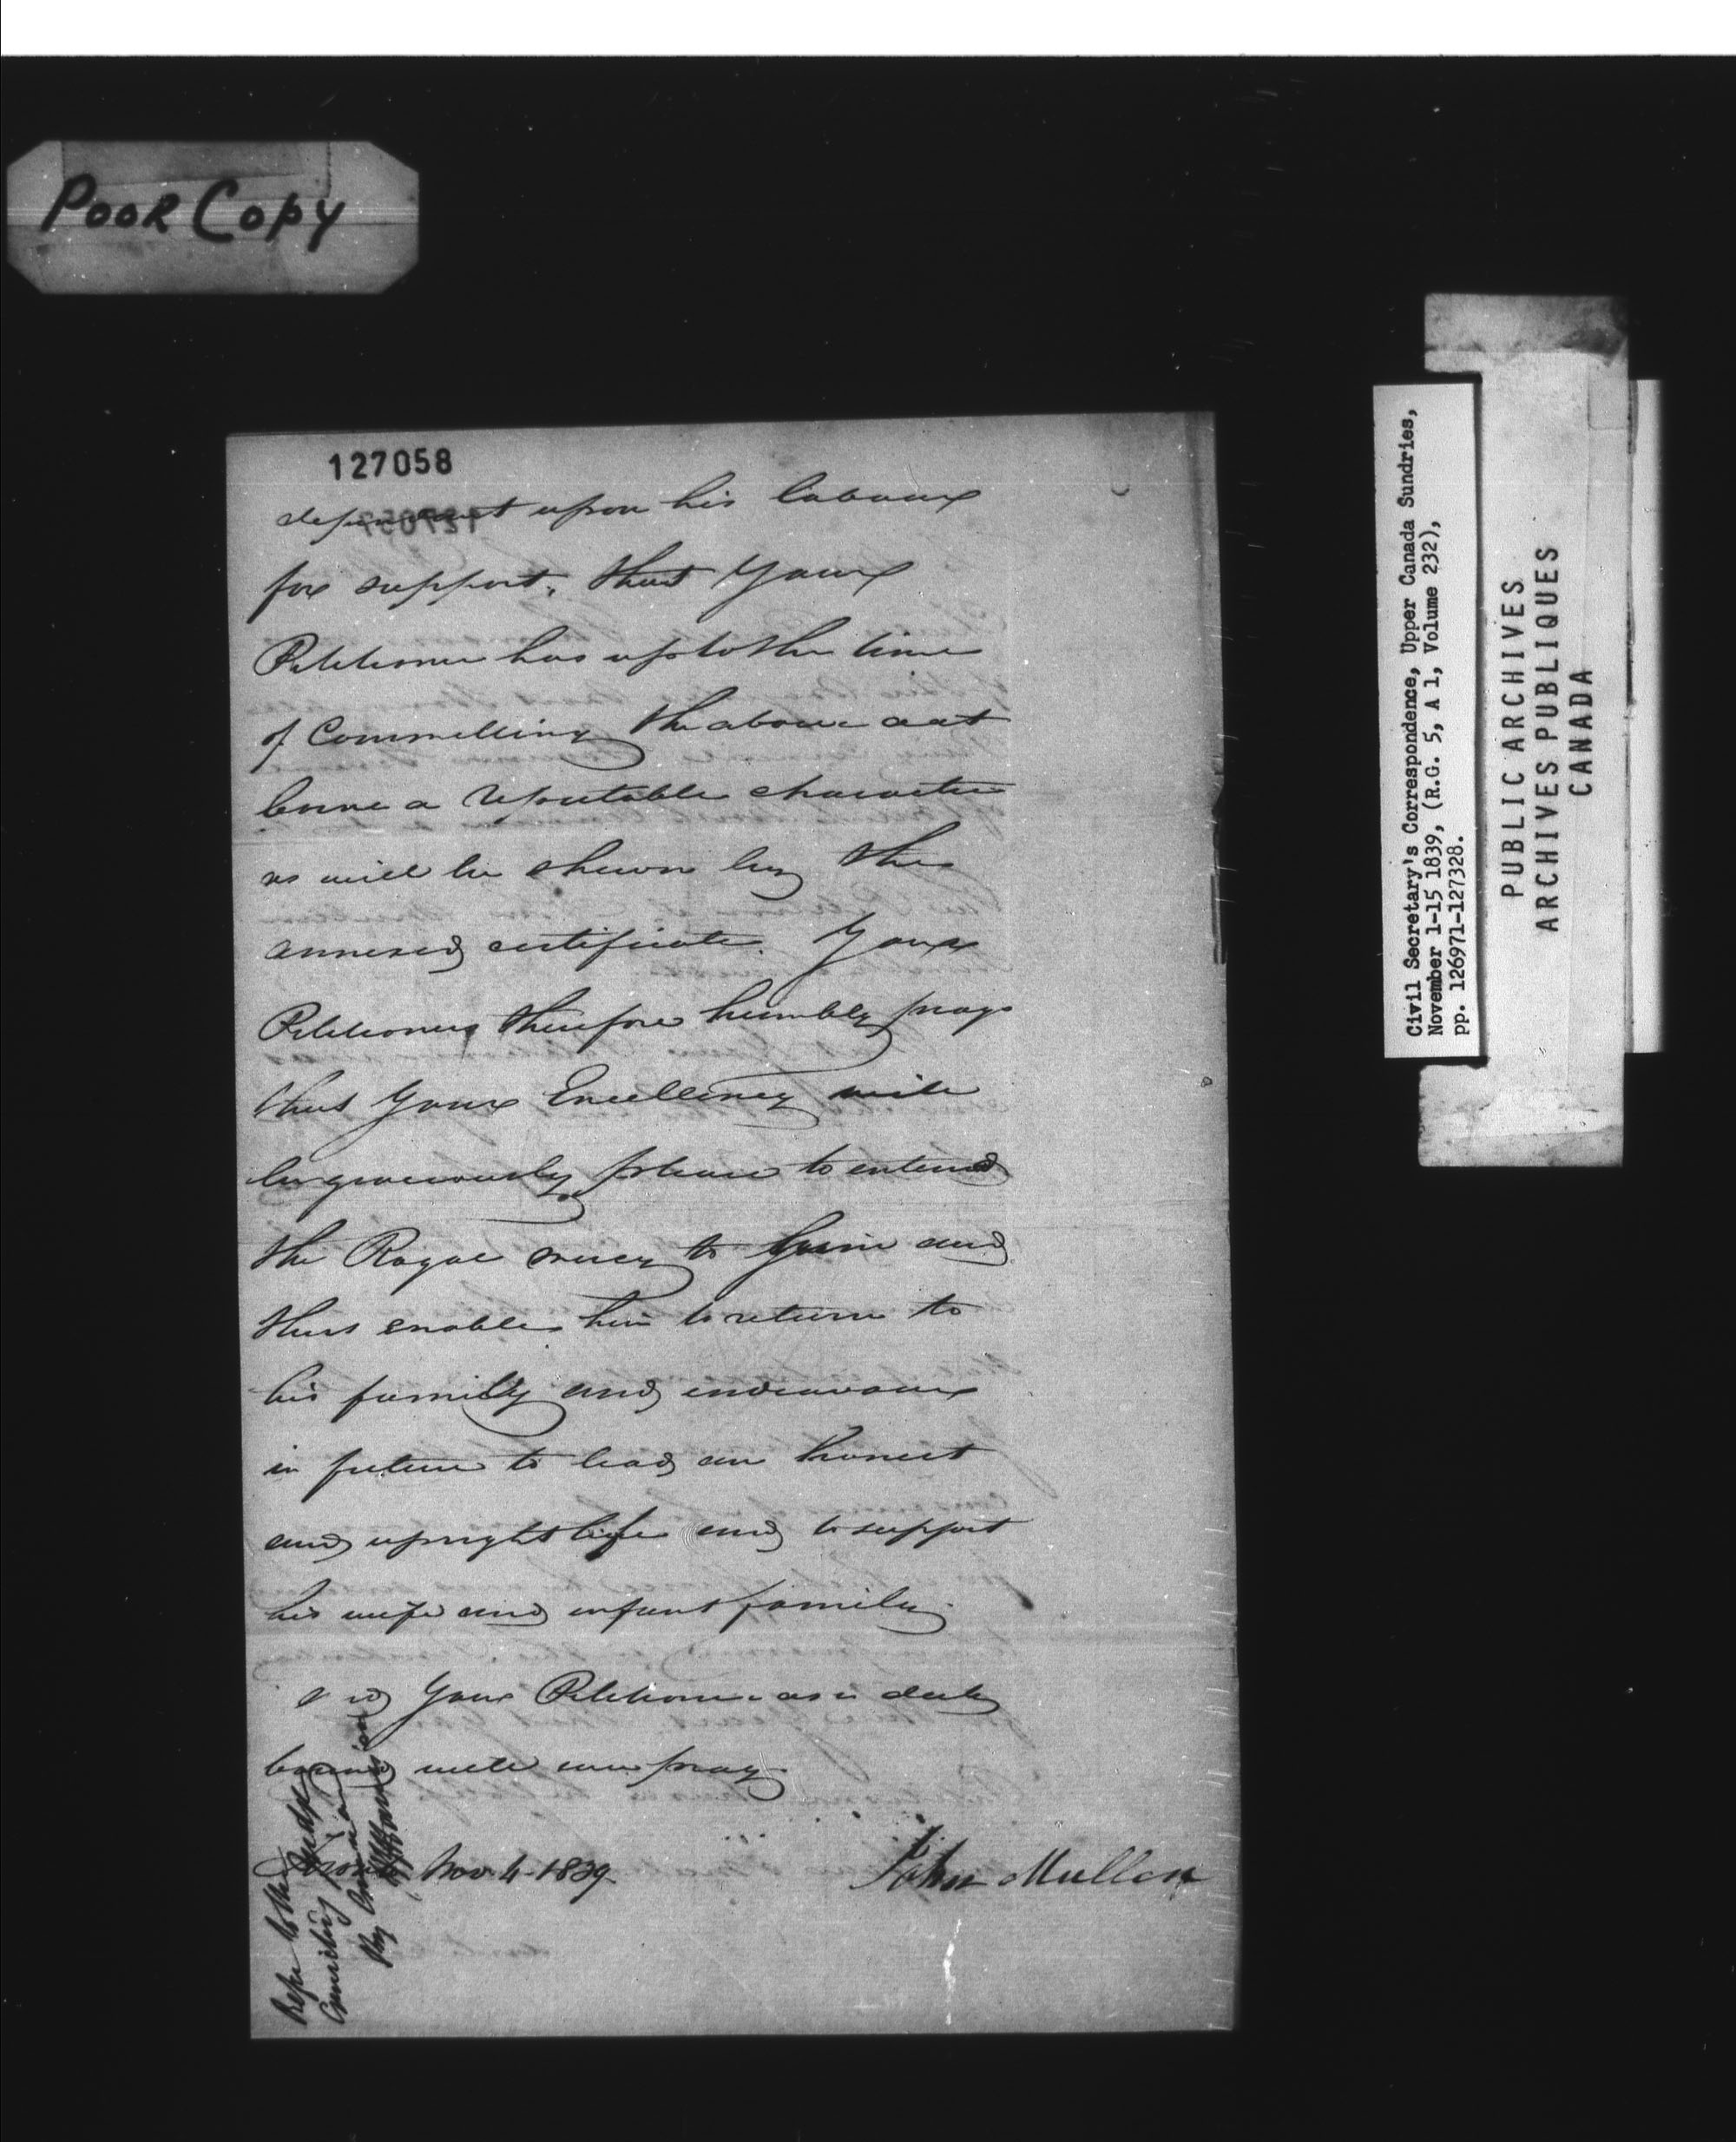 POOR COPY
127058
dependent upon his labour
for support, that Your
Petitioner has up to the time
of Committing the above act
borne a reputable character
as will be shewn by the
annexed certificate. Your
Petitioner therefore humbly prays
that Your Excellency will
be graciously please to extend
the Royal mercy to him and
thus enable him to return to
his family and endeavour
in future to lead an honest
and upright life and to support
his wife and infant family.
And Your Petitioner as in duty
bound will ever pray
Nov. 4 - 1839.
John Mullen
Refer to the Judge
By Command
Civil Secretary's Correspondence, Upper Canada Sundries,
November 1-15 1839, (R.G. 5, A 1, Volume 232),
pp. 126971-127328.
PUBLIC ARCHIVES
ARCHIVES PUBLIQUES
CANADA